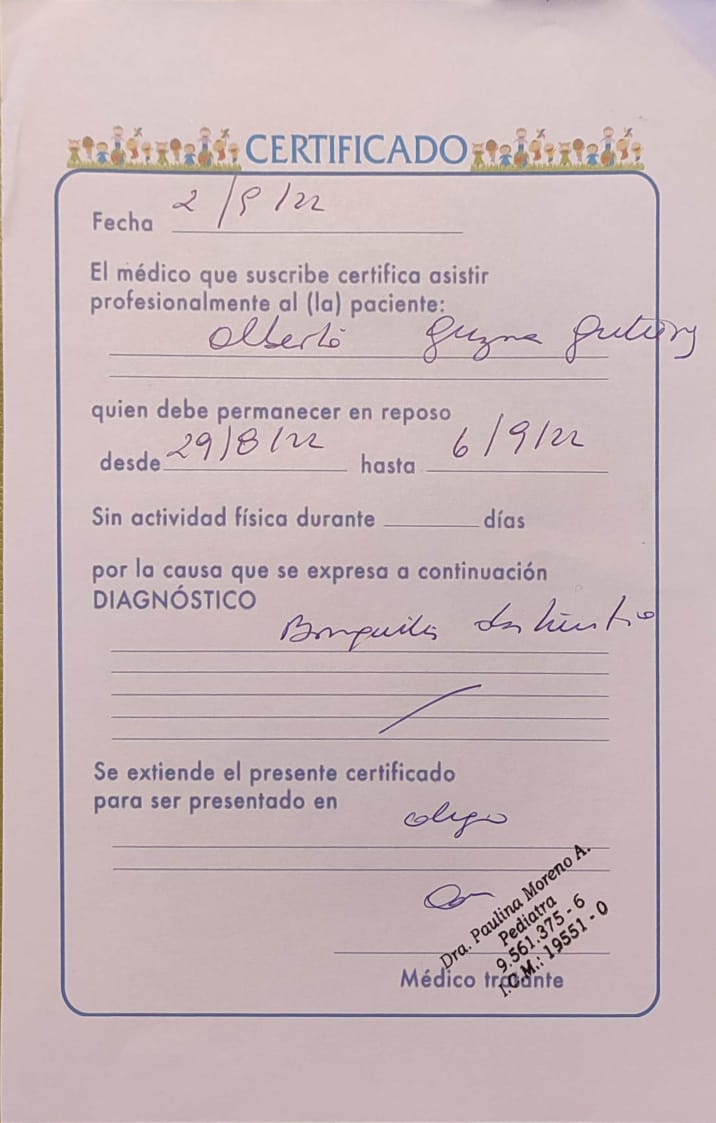 CERTIFICADO
Fecha 2/9/22
El médico que suscribe certifica asistir
profesionalmente al (la) paciente:
Alberto Guzma
quien debe permanecer en reposo
desde 29/8/22 hasta 6/9/22
Sin actividad física durante ________ días
por la causa que se expresa a continuación
DIAGNÓSTICO
Se extiende el presente certificado
para ser presentado en
Dra. Paulina Moreno A.
Pediatra
9.561.375 - 6
I.C.M.: 19551 - 0
Médico tratante